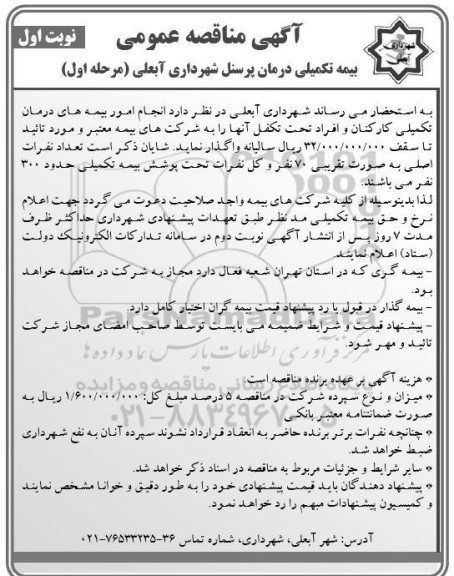 آگهی مناقصه عمومی
نوبت اول
شهرداری آبعلی
بیمه تکمیلی درمان پرسنل شهرداری آبعلی (مرحله اول)
به استحضار می رساند شهرداری آبعلی در نظر دارد انجام امور بیمه های درمان
تکمیلی کارکنان و افراد تحت تکفل آنها را به شرکت های بیمه معتبر و مورد تائید
تا سقف ۳۲/۰۰۰/۰۰۰/۰۰۰ ریال سالیانه واگذار نماید. شایان ذکر است تعداد نفرات
اصلی به صورت تقریبی ۷۰ نفر و کل نفرات تحت پوشش بیمه تکمیلی حدود ۳۰۰
نفر می باشند.
لذا بدینوسیله از کلیه شرکت های بیمه واجد صلاحیت دعوت می گردد جهت اعلام
نرخ و حق بیمه تکمیلی مد نظر طبق تعهدات پیشنهادی شهرداری حداکثر ظرف
مدت ۷ روز پس از انتشار آگهی نوبت دوم در سامانه تدارکات الکترونیک دولت
(ستاد) اعلام نمایند.
- بیمه گری که در استان تهران شعبه فعال دارد مجاز به شرکت در مناقصه خواهد
بود.
- بیمه گذار در قبول یا رد پیشنهاد قیمت بیمه گران اختیار کامل دارد.
- پیشنهاد قیمت و شرایط ضمیمه می بایست توسط صاحب امضای مجاز شرکت
تائید و مهر شود.
* هزینه آگهی بر عهده برنده مناقصه است.
* میزان و نوع سپرده شرکت در مناقصه ۵ درصد مبلغ کل: ۱/۶۰۰/۰۰۰/۰۰۰ ریال به
صورت ضمانتنامه معتبر بانکی
* چنانچه نفرات برتر برنده حاضر به انعقاد قرارداد نشوند سپرده آنان به نفع شهرداری
ضبط خواهد شد.
* سایر شرایط و جزئیات مربوط به مناقصه در اسناد ذکر خواهد شد.
* پیشنهاد دهندگان باید قیمت پیشنهادی خود را به طور دقیق و خوانا مشخص نمایند
و کمیسیون پیشنهادات مبهم را رد خواهد نمود.
آدرس: شهر آبعلی، شهرداری، شماره تماس ۳۶-۷۶۵۳۳۲۳۵-۰۲۱